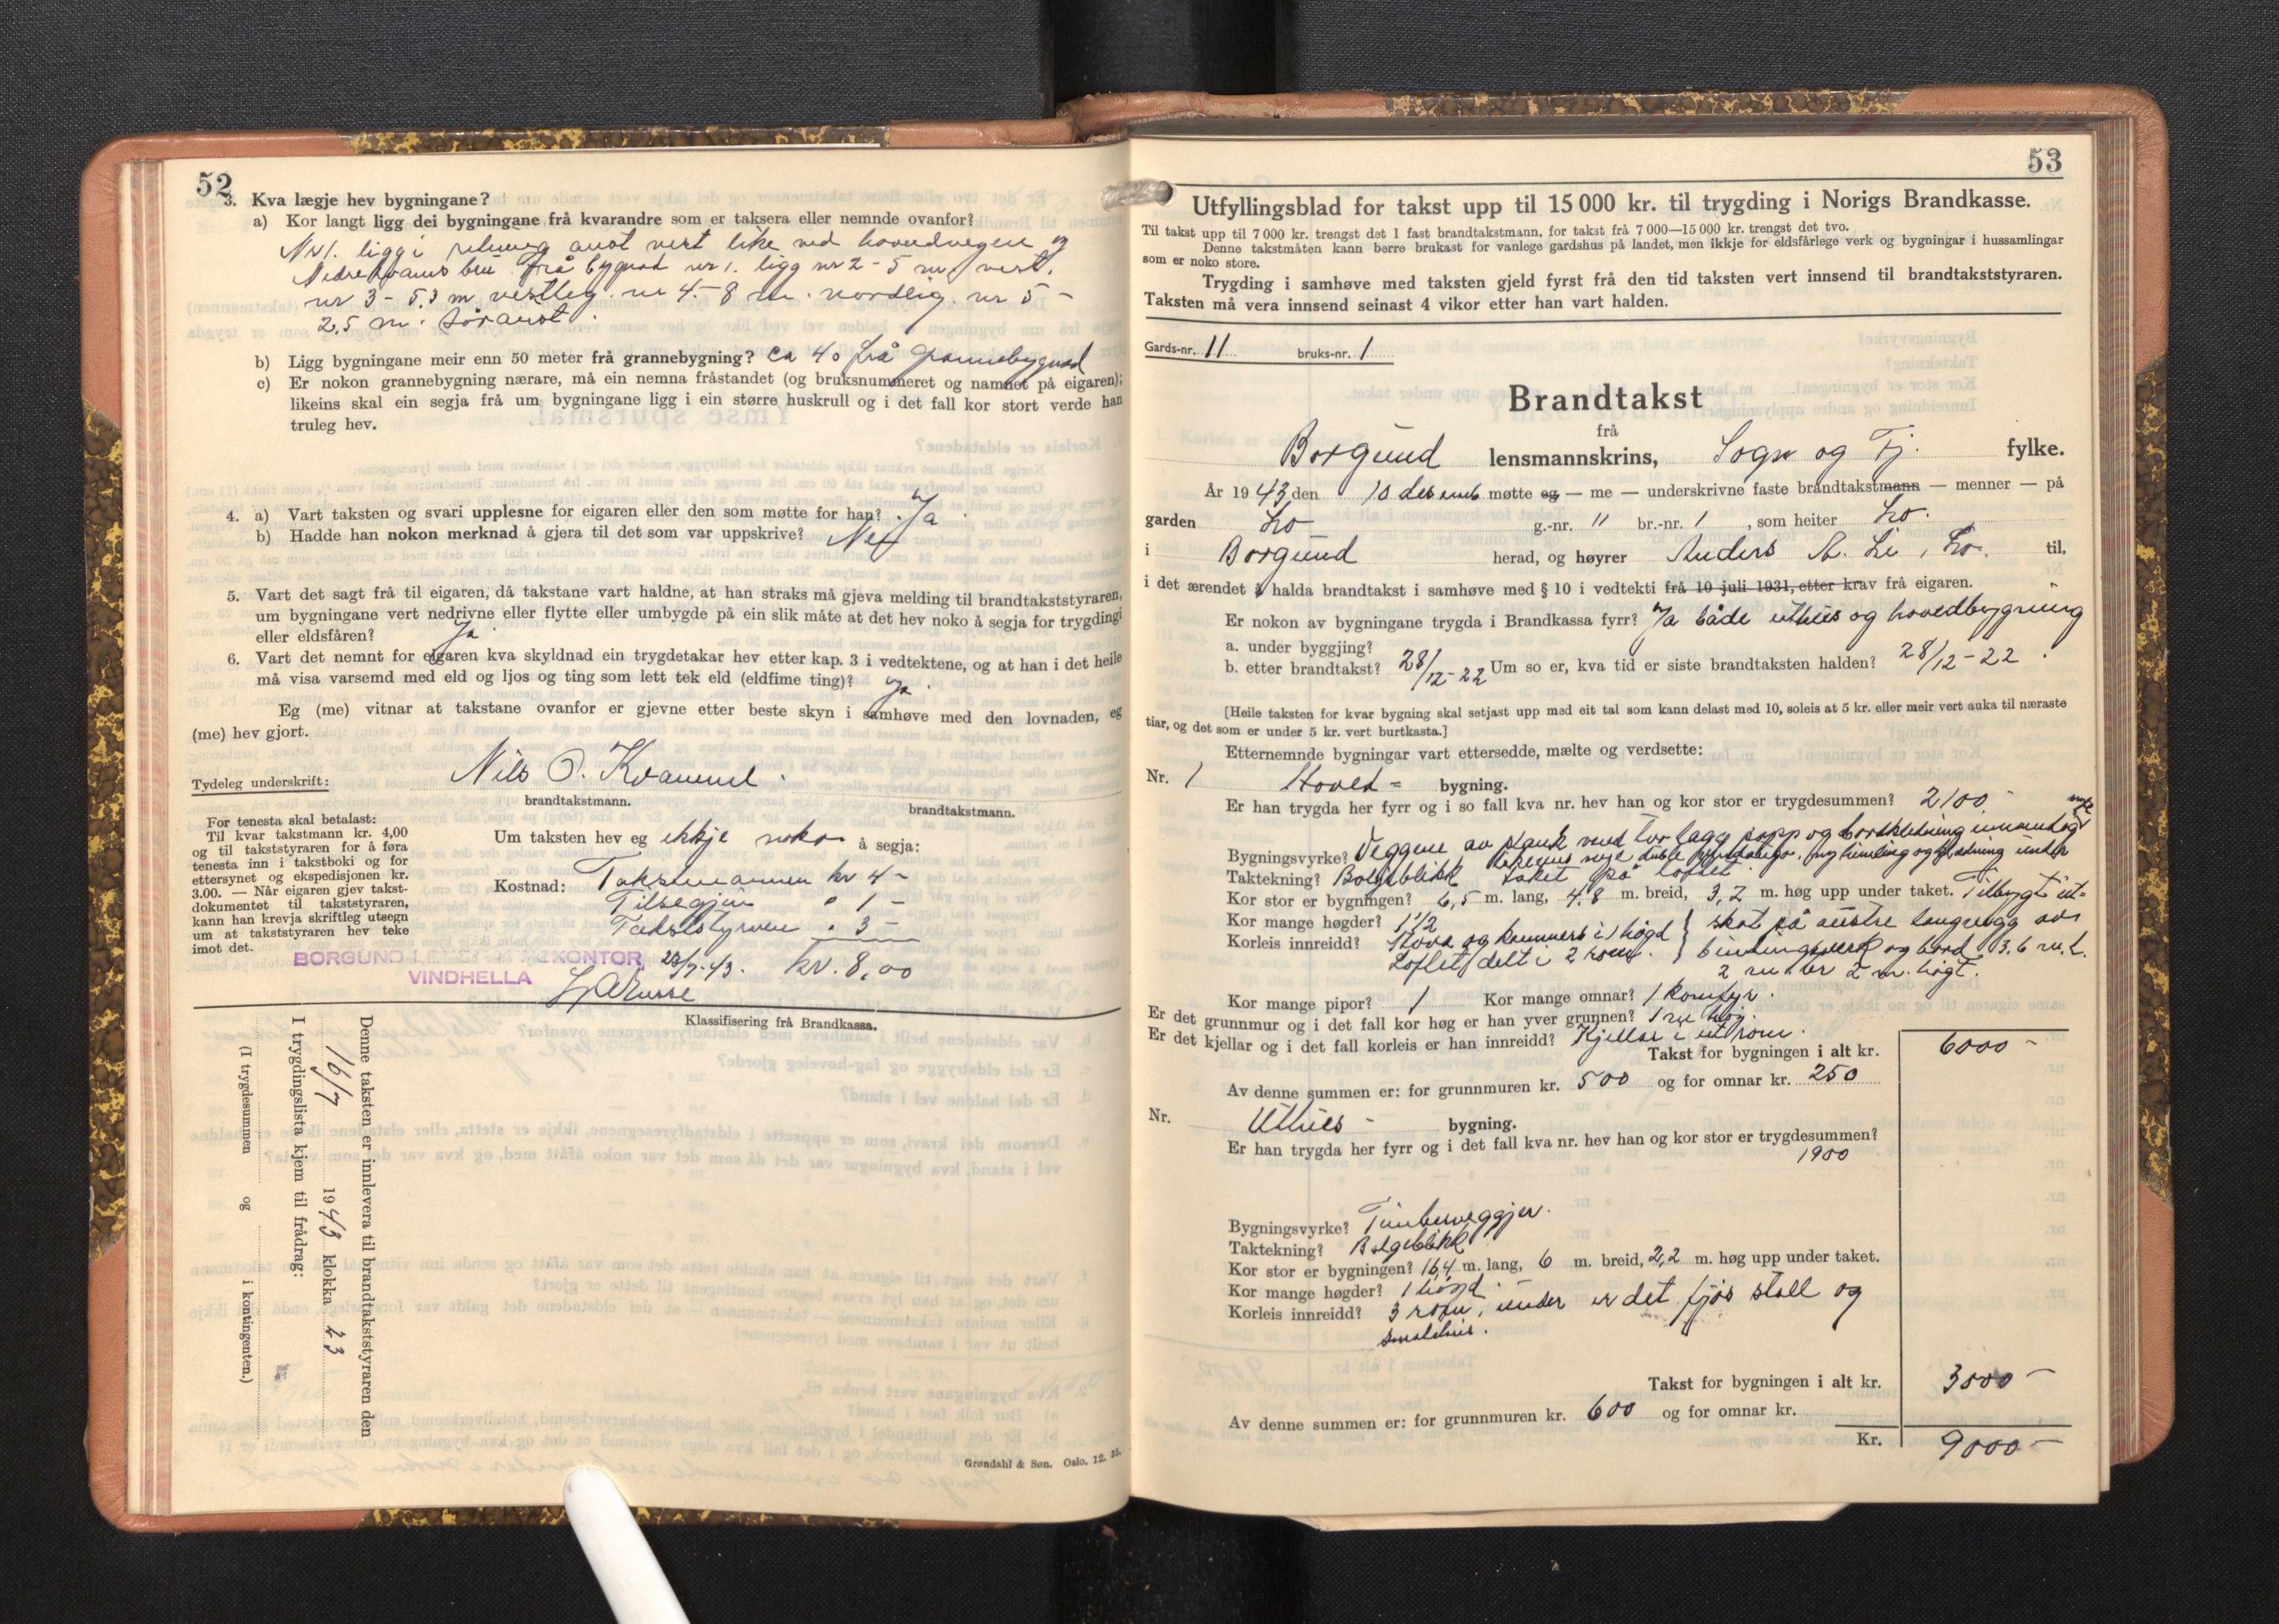 52
3. Kva lægje hev bygningane?
a) Kor langt ligg dei bygningane frå kvarandre som er taksera eller nemnde ovanfor?
Nr 1. ligg i retning aust vest like ved hovedvegen og
Nedrekvams bru. Frå bygnad nr 1. ligg nr 2 - 5 m vest.
nr 3 - 5,3 m vestleg. nr 4. - 8 m. nordlig. nr 5 -
2,5 m. søraust.
b) Ligg bygningane meir enn 50 meter frå grannebygning? ca 40 frå grannebygnad
c) Er nokon grannebygning nærare, må ein nemna fråstandet (og bruksnummeret og namnet på eigaren);
likeins skal ein segja frå um bygningane ligg i ein større huskrull og i det fall kor stort verde han
truleg hev.
4. a) Vart taksten og svari upplesne for eigaren eller den som møtte for han? Ja
b) Hadde han nokon merknad å gjera til det som var uppskrive? Nei
5. Vart det sagt frå til eigaren, då takstane vart haldne, at han straks må gjeva melding til brandtakststyraren,
um bygningane vert nedrivne eller flytte eller umbygde på ein slik måte at det hev noko å segja for trygdingi
eller eldsfåren? Ja.
6. Vart det nemnt for eigaren kva skyldnad ein trygdetakar hev etter kap. 3 i vedtektene, og at han i det heile
må visa varsemd med eld og ljos og ting som lett tek eld (eldfime ting)? Ja.
Eg (me) vitnar at takstane ovanfor er gjevne etter beste skyn i samhøve med den lovnaden, eg
(me) hev gjort.
Tydeleg underskrift: Nils O. Kvamme.
brandtakstmann. brandtakstmann.
For tenesta skal betalast:
Til kvar takstmann kr. 4,00
og til takststyraren for å føra
tenesta inn i takstboki og for
ettersynet og ekspedisjonen kr.
3.00. — Når eigaren gjev takst-
dokumentet til takststyraren,
kann han krevja skriftleg utsegn
um at takststyraren hev teke
imot det.
Um taksten hev eg ikkje noko å segja:
Kostnad: Takstmannen kr 4 -
Tilsegjin " 1 -
Takststyraren " 3 -
23/7-43. kr. 8,00
BORGUND LENSMANNSKONTOR
VINDHELLA
Klassifisering frå Brandkassa.
Denne taksten er innlevera til brandtakststyraren den
16/7 1943 klokka 23
I trygdingslista kjem til frådrag:
(I trygdesummen og i kontingenten.)
Grøndahl & Søn. Oslo. 12. 35.
53
Utfyllingsblad for takst upp til 15 000 kr. til trygding i Norigs Brandkasse.
Til takst upp til 7 000 kr. trengst det 1 fast brandtakstmann, for takst frå 7 000—15 000 kr. trengst det tvo.
Denne takstmåten kann berre brukast for vanlege gardshus på landet, men ikkje for eldsfårlege verk og bygningar i hussamlingar
som er noko store.
Trygding i samhøve med taksten gjeld fyrst frå den tid taksten vert innsend til brandtakststyraren.
Taksten må vera innsend seinast 4 vikor etter han vart halden.
Gards-nr. 11 bruks-nr. 1
Brandtakst
frå
Borgund lensmannskrins, Sogn og Fj. fylke.
År 1943 den 10 desemb møtte eg — me — underskrivne faste brandtakstmann — menner — på
garden Lo g.-nr. 11 br.-nr. 1, som heiter Lo.
i Borgund herad, og høyrer Anders A. Li, Lo. til,
i det ærendet å halda brandtakst i samhøve med § 10 i vedtekti frå 10 juli 1931, etter krav frå eigaren.
Er nokon av bygningane trygda i Brandkassa fyrr? Ja både uthus og hovedbygning
a. under byggjing?
b. etter brandtakst? 28/12-22 Um so er, kva tid er siste brandtaksten halden? 28/12-22.
[Heile taksten for kvar bygning skal setjast upp med eit tal som kann delast med 10, soleis at 5 kr. eller meir vert auka til næraste
tiar, og det som er under 5 kr. vert burtkasta.]
Etternemnde bygningar vart ettersedde, mælte og verdsette:
Nr. 1 Hoved- bygning.
Er han trygda her fyrr og i so fall kva nr. hev han og kor stor er trygdesummen? 2100
Bygningsvyrke? Veggene av plank med torlagg papp og bordkledning innvendig
Taktekning? Bølgeblikk taket på loftet
Kor stor er bygningen? 6,5 m. lang, 4,8 m. breid, 3,2 m. høg upp under taket. Tilbygt ut-
Kor mange høgder? 1 1/2 skot på austre langvegg av
Korleis innreidd? Stova og kammers i 1 høgd bindingsverk og bord 3.6 m. l.
Loftet delt i 2 rom. 2 m. br 2 m. høgt.
Kor mange pipor? 1 Kor mange omnar? 1 komfyr.
Er det grunnmur og i det fall kor høg er han yver grunnen? 1 m høg.
Er det kjellar og i det fall korleis er han innreidd? Kjellar i eit rom.
Takst for bygningen i alt kr. 6000 -
Av denne summen er: for grunnmuren kr. 500 og for omnar kr. 250
Nr. Uthus - bygning.
Er han trygda her fyrr og i det fall kva nr. hev han og kor stor er trygdesummen?
1900
Bygningsvyrke? Timberveggjer.
Taktekning? Bølgeblikk
Kor stor er bygningen? 16,4 m. lang, 6 m. breid, 2,2 m. høg upp under taket.
Kor mange høgder? 1 høgd.
Korleis innreidd? 3 rom, under er det fjøs stall og
smalehus.
Takst for bygningen i alt kr. 3000 -
Av denne summen er: for grunnmuren kr. 600 og for omnar kr.
Kr. 9000 -